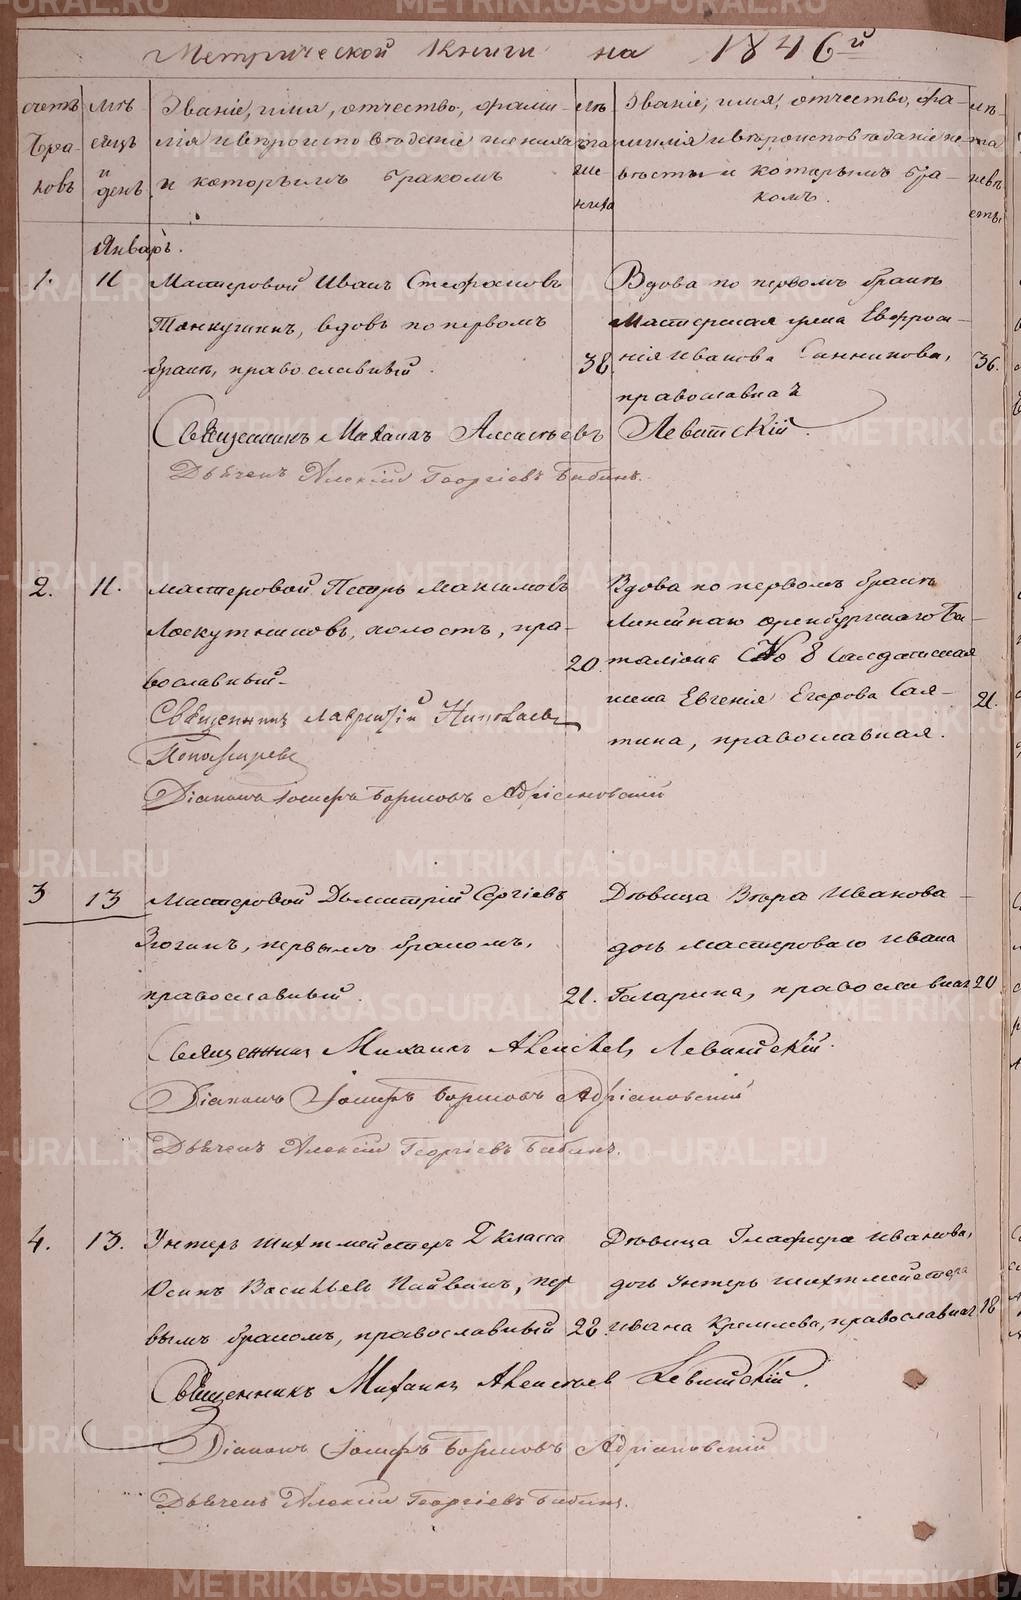 Метрической Книги на 1846й
счетъ браковъ
мѣсяцъ и день
Званіе, имя, отчество, фамилія и вѣроисповѣданіе жениха и которымъ бракомъ
лѣта жениха
Званіе, имя, отчество, фамилія и вѣроисповѣданіе невѣсты и которымъ бракомъ.
лѣта невѣсты
Январь.
1. 11
Мастеровой Иванъ Стефановъ
вдовъ по первомъ
бракѣ, православный.
38.
Вдова по первомъ бракѣ
Мастерская жена Евфроси-
нія Иванова Санникова,
православная
36.
Священникъ Михаилъ Алексѣевъ Левитскій.
Дьячекъ Алексій Георгіевъ Бабинъ.
2. 11.
мастеровой Петръ Максимовъ
Лоскутниковъ, холостъ, пра-
вославный.
20.
Вдова по первомъ бракѣ
Линѣйнаго Оренбургскаго Ба-
таліона № 8 Салдатская
жена Евгенія Егорова Сал-
тина, православная.
21.
Священникъ Лаврентій Николаевъ
Пономаревъ
Діаконъ Іосифъ Борисовъ Адріановскій
3 13
Мастеровой Дмитрій Сергіевъ
первымъ бракомъ,
православный.
21.
Дѣвица Вѣра Иванова
дочь мастероваго Ивана
православная
20
Священникъ Михаилъ Алексѣевъ Левитскій.
Діаконъ Іосифъ Борисовъ Адріановскій
Дьячекъ Алексій Георгіевъ Бабинъ.
4. 13.
Унтеръ шихтмейстеръ 2 класса
Осипъ Васильевъ Пайвинъ, пер
вымъ бракомъ, православный
22.
Дѣвица Глафира Иванова,
дочь Унтеръ шихтмейстера
Ивана Кремлева, православная
18
Священникъ Михаилъ Алексѣевъ Левитскій.
Діаконъ Іосифъ Борисовъ Адріановскій
Дьячекъ Алексій Георгіевъ Бабинъ.
METRIKI.GASO-URAL.RU